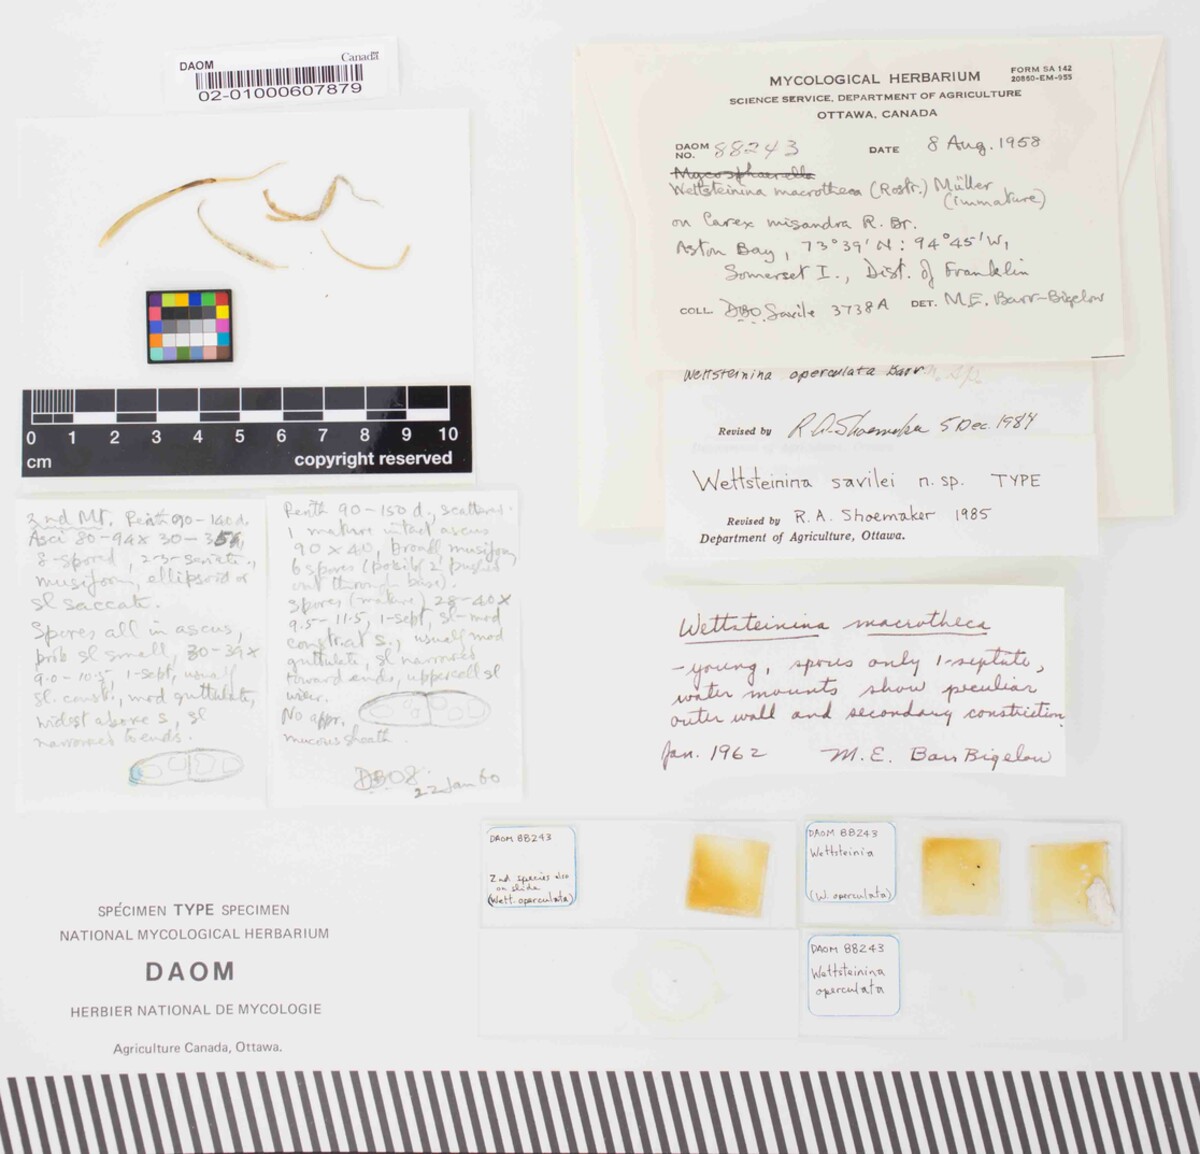 DAOM
Canada
02-01000607879
0 1 2 3 4 5 6 7 8 9 10
cm
copyright reserved
MYCOLOGICAL HERBARIUM
FORM SA 142
20860-EM-955
SCIENCE SERVICE, DEPARTMENT OF AGRICULTURE
OTTAWA, CANADA
DAOM NO. 88243 DATE 8 Aug. 1958
Mycosphaerella
Wettsteinina macrotheca (Rostr.) Müller
(immature)
on Carex misandra R. Br.
Aston Bay, 73°39'N: 94°45'W,
Somerset I., Dist. of Franklin
COLL. DBO Savile 3738A DET. M.E. Barr-Bigelow
Wettsteinina operculata Barr n. sp.
Revised by R.A. Shoemaker 5 Dec. 1984
Wettsteinina savilei n. sp. TYPE
Revised by R. A. Shoemaker 1985
Department of Agriculture, Ottawa.
2nd Mt. Perith 90-140 d.
Asci 80-94 x 30-
8-spored, 2-3-seriate,
ellipsoid or
sl saccate.
Spores all in ascus,
prob sl small, 30-39 x
9.0-10.5, 1-sept, usual
sl. const., mod guttulate,
widest above s, sl
narrowed to ends.
Perith 90-150 d., scattered.
1 mature intact ascus
90 x 40, broadl
6 spores (possibl 2 pushed
out through base).
Spores (mature) 28-40 x
9.5-11.5, 1-sept, sl-mod
constrict s., usuall mod
guttulate, sl narrowed
toward ends, upper cell sl
wider.
No appr.
mucous sheath.
DBOS
22 Jan 60
Wettsteinina macrotheca
- young, spores only 1-septate,
water mounts show peculiar
outer wall and secondary constriction
Jan. 1962 M. E. Barr Bigelow
DAOM 88243
2nd species also
on slide
(Wett. operculata)
DAOM 88243
Wettsteinia
(W. operculata)
DAOM 88243
Wettsteinina
operculata
SPÉCIMEN TYPE SPECIMEN
NATIONAL MYCOLOGICAL HERBARIUM
DAOM
HERBIER NATIONAL DE MYCOLOGIE
Agriculture Canada, Ottawa.